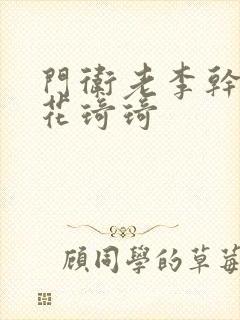 門衛老李幹
花琦琦
顧同學的草莓